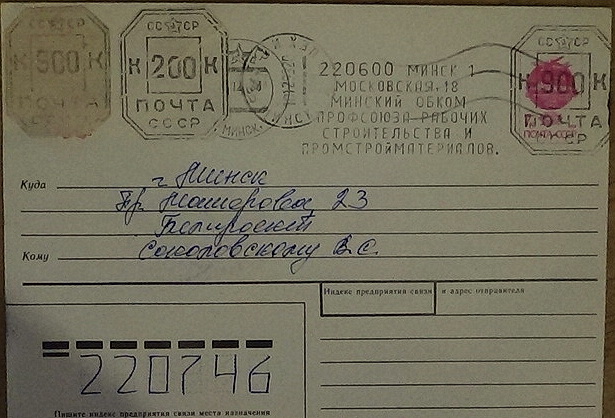 СССР
К 900 К
ПОЧТА
СССР
СССР
К 200 К
ПОЧТА
СССР
МИНСК
220600 МИНСК 1
МОСКОВСКАЯ, 18
МИНСКИЙ ОБКОМ
ПРОФСОЮЗА РАБОЧИХ
СТРОИТЕЛЬСТВА И
ПРОМСТРОЙМАТЕРИАЛОВ.
СССР
К 900 К
ПОЧТА СССР
ПОЧТА
СССР
Куда г. Минск
Пр. Машерова, 23
Белпроект
Кому Соколовскому В.С.
Индекс предприятия связи и адрес отправителя
220746
Пишите индекс предприятия связи места назначения